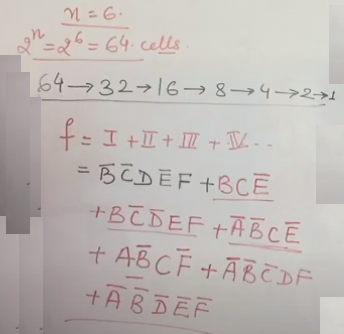 n = 6.
2ⁿ = 2⁶ = 64 cells.
64 → 32 → 16 → 8 → 4 → 2 → 1
f = I + II + III + IV ..
= B̅ C̅ D E̅ F + B C E̅
+ B C̅ D̅ E F + A̅ B̅ C E̅
+ A B̅ C F̅ + A̅ B̅ C̅ D F
+ A̅ B̅ D̅ E̅ F̅